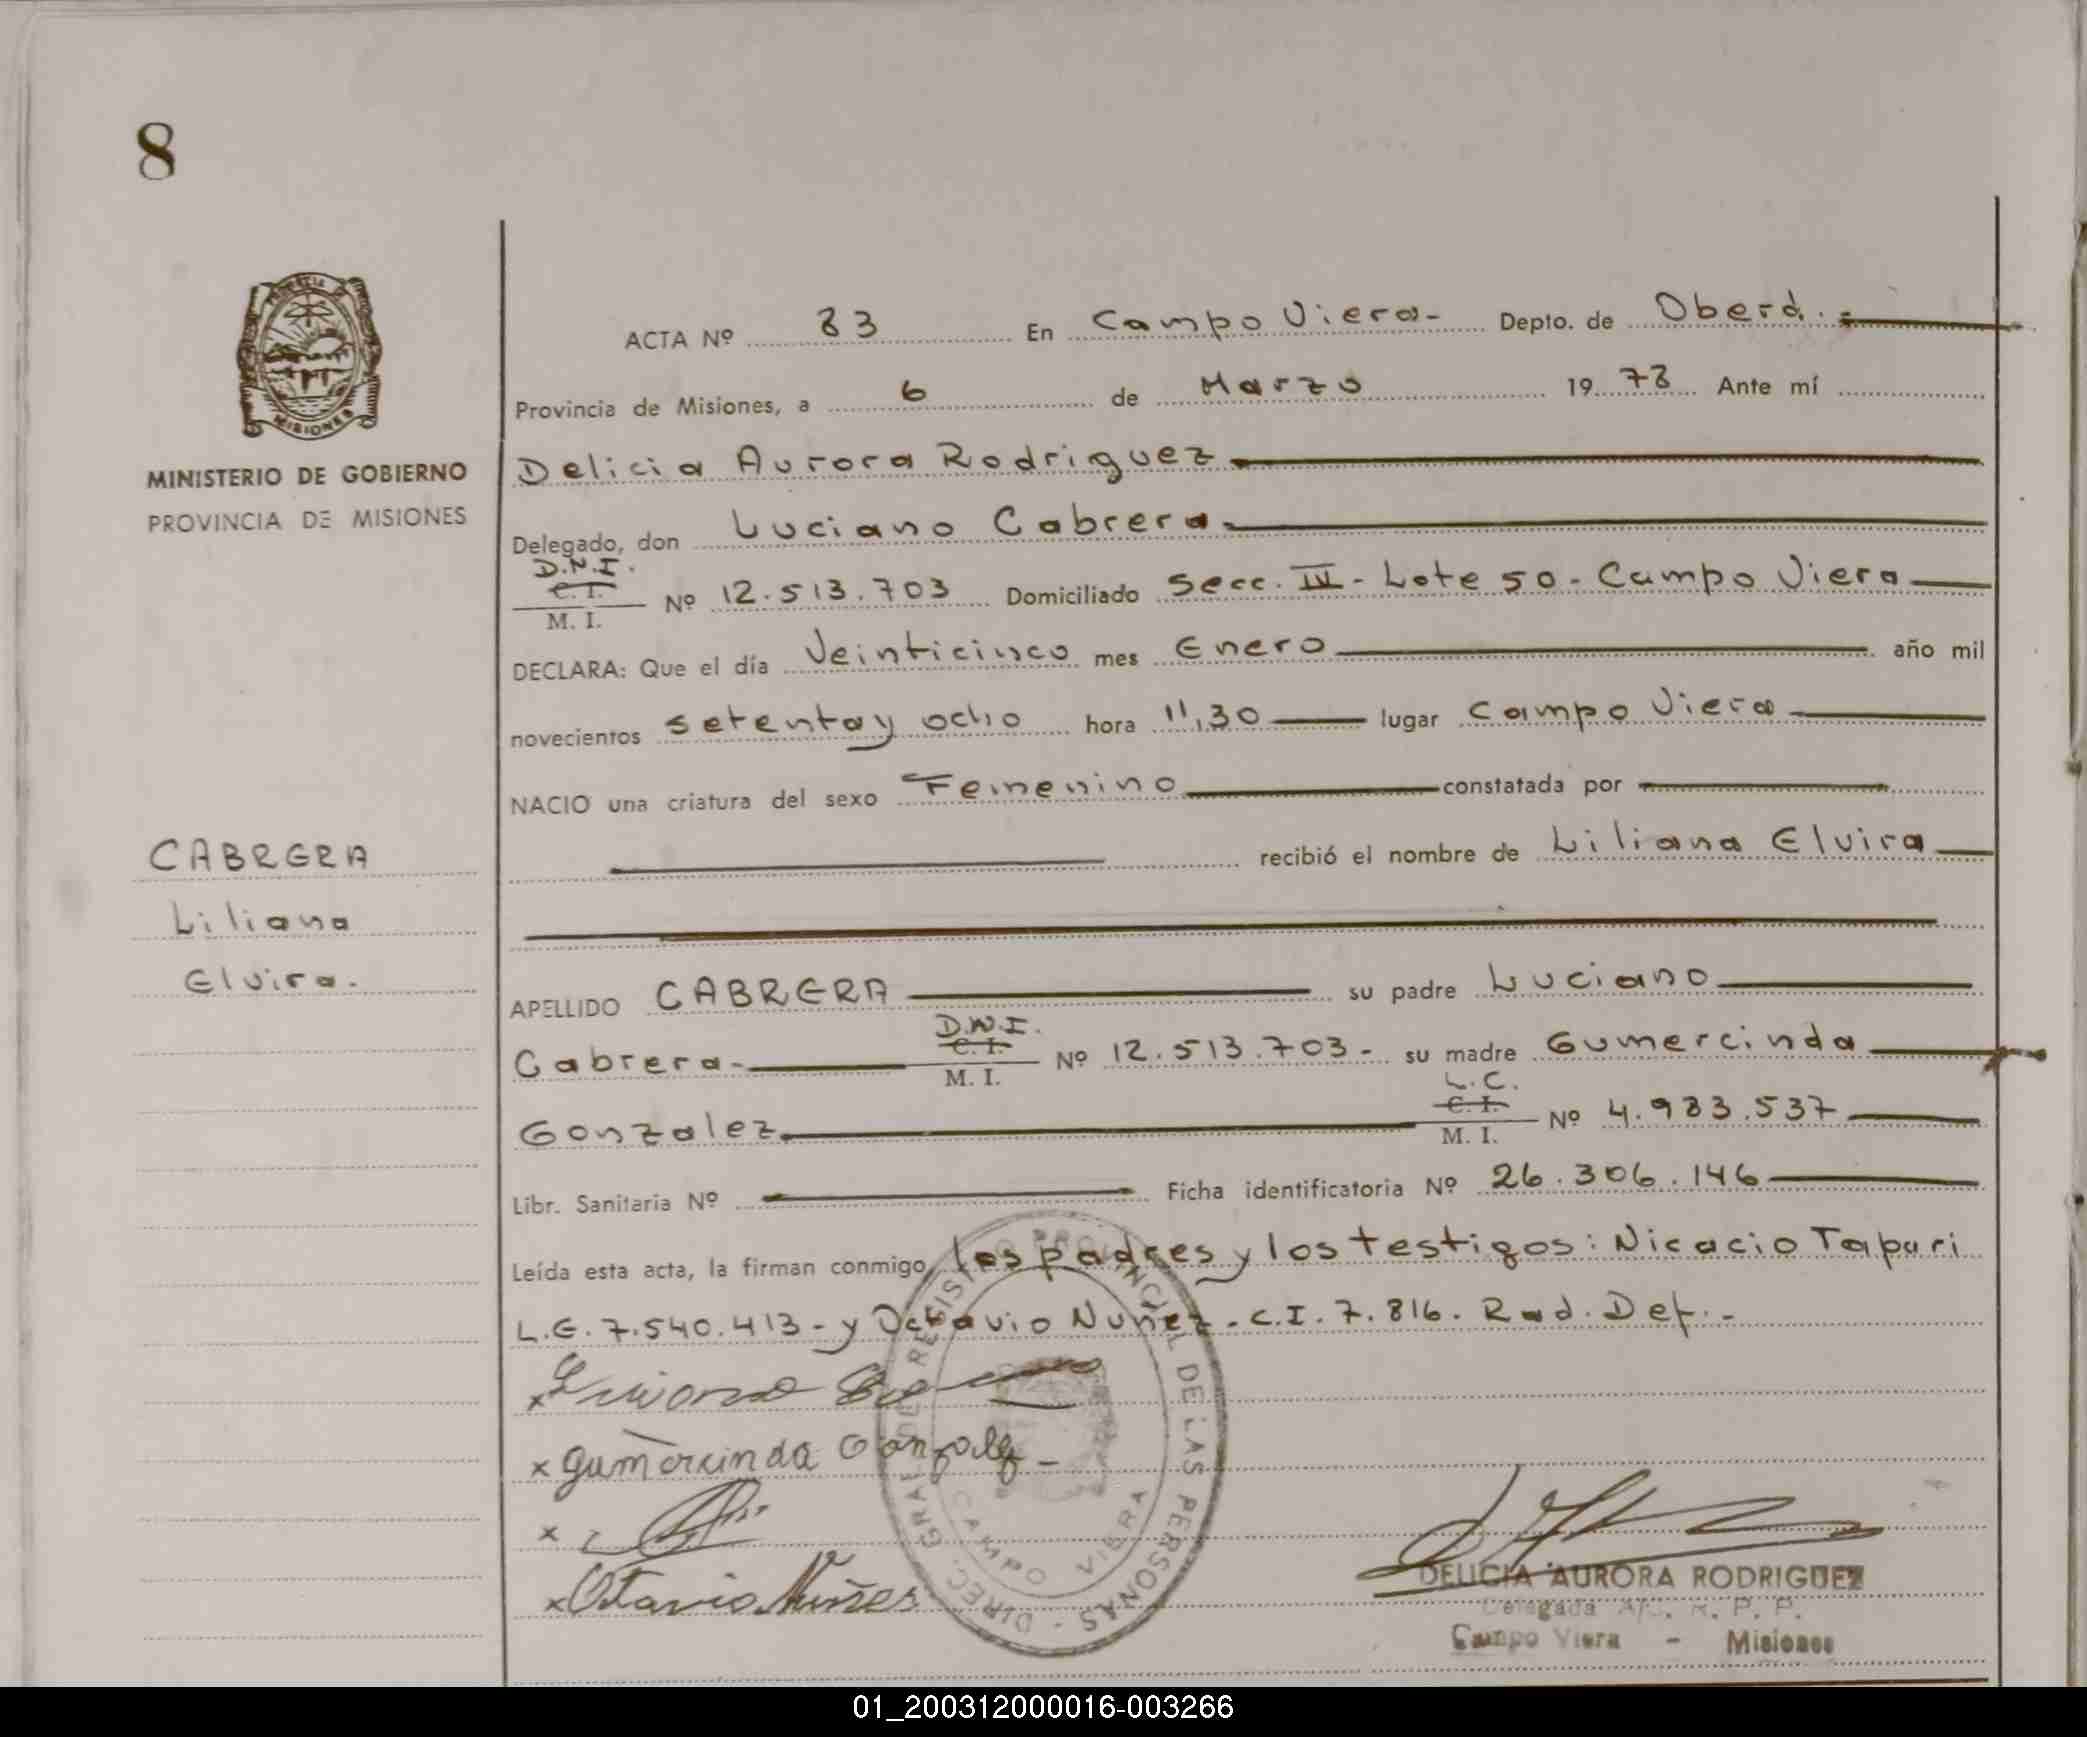 8
MINISTERIO DE GOBIERNO
PROVINCIA DE MISIONES
CABRERA
Liliana
Elvira.
ACTA Nº 83 En Campo Viera- Depto. de Oberá.-
Provincia de Misiones, a 6 de Marzo 19 78 Ante mí
Delicia Aurora Rodriguez
Delegado, don Luciano Cabrera
D.N.I.
C. I.
M. I. Nº 12.513.703 Domiciliado Secc. IV - Lote 50 - Campo Viera
DECLARA: Que el día Veinticinco mes Enero año mil
novecientos setenta y ocho hora 11,30 lugar Campo Viera
NACIO una criatura del sexo Femenino constatada por
recibió el nombre de Liliana Elvira
APELLIDO CABRERA su padre Luciano
D.N.I.
Cabrera- C. I. Nº 12.513.703- su madre Gumercinda
M. I.
L.C.
Gonzalez C. I. Nº 4.983.537
M. I.
Libr. Sanitaria Nº Ficha identificatoria Nº 26.306.146
Leída esta acta, la firman conmigo los padres y los testigos: Nicacio Tapari
L.E. 7.540.413- y Octavio Nuñez - C.I. 7.816. Rad. Def.-
x Luciano
x Gumercinda Gonzalez -
x
x Otavio Nuñes
DIREC. GRAL. DEL REGISTRO PROVINCIAL DE LAS PERSONAS -
CAMPO VIERA
DELICIA AURORA RODRIGUEZ
Delegada R. P. P.
Campo Viera - Misiones
01_200312000016-003266